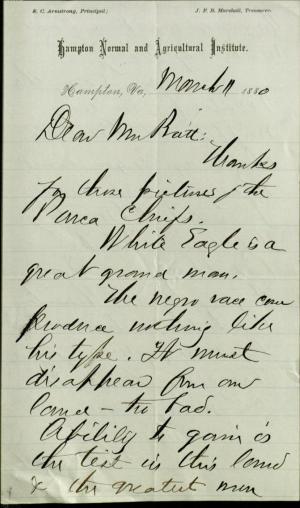 S. C. Armstrong, Principal; J. F. B. Marshall, Treasurer.
Hampton Normal and Agricultural Institute.
Hampton, Va, March 11 1880
Dear Mr Pratt:
Thanks
for those pictures of the
Ponca Chiefs.
White Eagle is a
great grand man.
The negro race can
produce nothing like
his type. It must
disappear from our
land - too bad.
Ability to gain is
the test in this land
& the greatest men